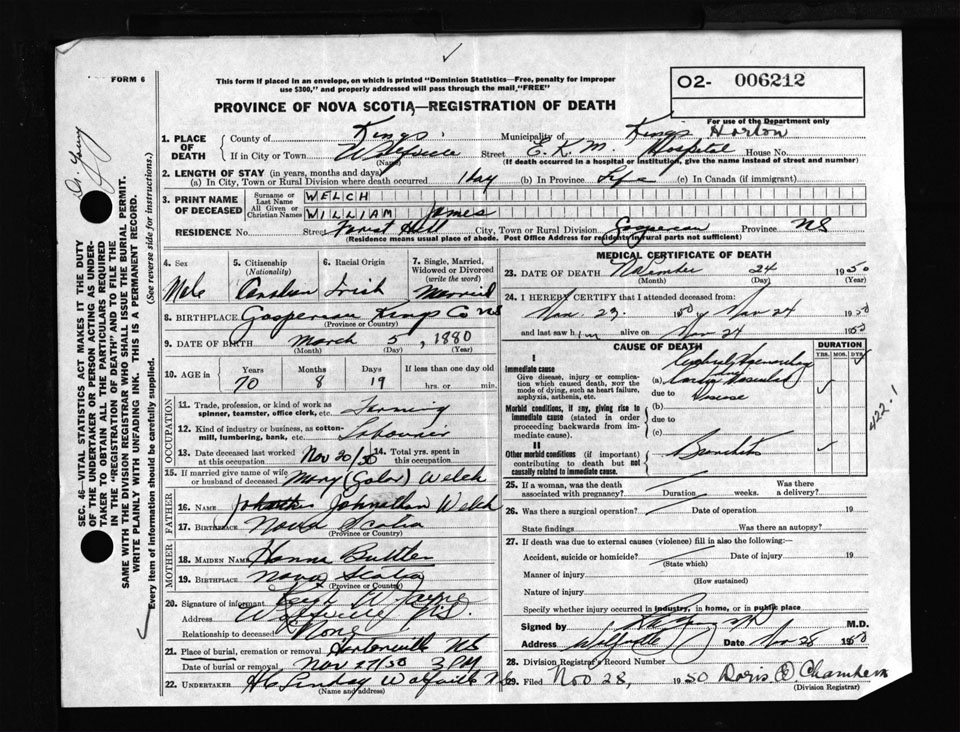 FORM 6
This form if placed in an envelope, on which is printed "Dominion Statistics—Free, penalty for improper
use $300," and properly addressed will pass through the mail, "FREE"
O2- 006212
For use of the Department only
PROVINCE OF NOVA SCOTIA—REGISTRATION OF DEATH
Dr. Young
1. PLACE OF DEATH
County of Kings Municipality of Kings Horton
If in City or Town Street E. K. M. Hospital House No.
(Name) (If death occurred in a hospital or institution, give the name instead of street and number)
2. LENGTH OF STAY (in years, months and days)
(a) In City, Town or Rural Division where death occurred 1 day (b) In Province Life (c) In Canada (if immigrant)
3. PRINT NAME OF DECEASED
Surname or Last Name WELCH
All Given or Christian Names WILLIAM James
RESIDENCE No. Street Forest Hill City, Town or Rural Division Gaspereau Province NS
(Residence means usual place of abode. Post Office Address for residents in rural parts not sufficient)
4. Sex Male
5. Citizenship (Nationality) Canadian
6. Racial Origin Irish
7. Single, Married, Widowed or Divorced (write the word) Married
8. BIRTHPLACE Gaspereau Kings Co NS
(Province or Country)
9. DATE OF BIRTH March 5, 1880
(Month) (Day) (Year)
10. AGE in Years Months Days If less than one day old
70 8 19 hrs. or min.
OCCUPATION
11. Trade, profession, or kind of work as
spinner, teamster, office clerk, etc. Farming
12. Kind of industry or business, as cotton-
mill, lumbering, bank, etc.
13. Date deceased last worked at this occupation Nov 20/50
14. Total yrs. spent in this occupation
15. If married give name of wife
or husband of deceased Mary (Galor) Welch
FATHER
16. NAME Johnathan Welch
17. BIRTHPLACE Nova Scotia
(Province or Country)
MOTHER
18. MAIDEN NAME Buttler
19. BIRTHPLACE Nova Scotia
(Province or Country)
20. Signature of informant
Address N.S.
Relationship to deceased None
21. Place of burial, cremation or removal NS
Date of burial or removal Nov 27/50 3 PM
22. UNDERTAKER H C Lindsay Wolfville NS
(Name and address)
MEDICAL CERTIFICATE OF DEATH
23. DATE OF DEATH November 24 1950
(Month) (Day) (Year)
24. I HEREBY CERTIFY that I attended deceased from:
Nov. 23. 1950 Nov 24 1950
and last saw him alive on Nov 24 1950
CAUSE OF DEATH DURATION
YRS. MOS. DYS.
I
Immediate cause
Give disease, injury or compli-
cation which caused death, NOT the
mode of dying, such as heart failure,
asphyxia, asthenia, etc.
(a) Cardio Vascular
due to Disease
Morbid conditions, if any, giving rise to
immediate cause (stated in order
proceeding backwards from im-
mediate cause).
(b)
due to
(c)
422.1
II
Other morbid conditions (if important)
contributing to death but not
causally related to immediate cause.
Bronchitis
25. If a woman, was the death
associated with pregnancy? Duration weeks. Was there a delivery?
26. Was there a surgical operation? Date of operation 19
State findings Was there an autopsy?
27. If death was due to external causes (violence) fill in also the following:—
Accident, suicide or homicide? Date of injury 19
(State which)
Manner of injury
(How sustained)
Nature of injury
Specify whether injury occurred in industry, in home, or in public place
Signed by M.D.
Address Wolfville Date Nov 28 1950
28. Division Registrar's Record Number
29. Filed Nov 28, 1950 Doris Chambers
(Division Registrar)
SEC. 46—VITAL STATISTICS ACT MAKES IT THE DUTY
OF THE UNDERTAKER OR PERSON ACTING AS UNDER-
TAKER TO OBTAIN ALL THE PARTICULARS REQUIRED
IN THE "REGISTRATION OF DEATH" AND TO FILE THE
SAME WITH THE DIVISION REGISTRAR WHO SHALL ISSUE THE BURIAL PERMIT.
WRITE PLAINLY WITH UNFADING INK. THIS IS A PERMANENT RECORD.
Every item of information should be carefully supplied. (See reverse side for instructions.)